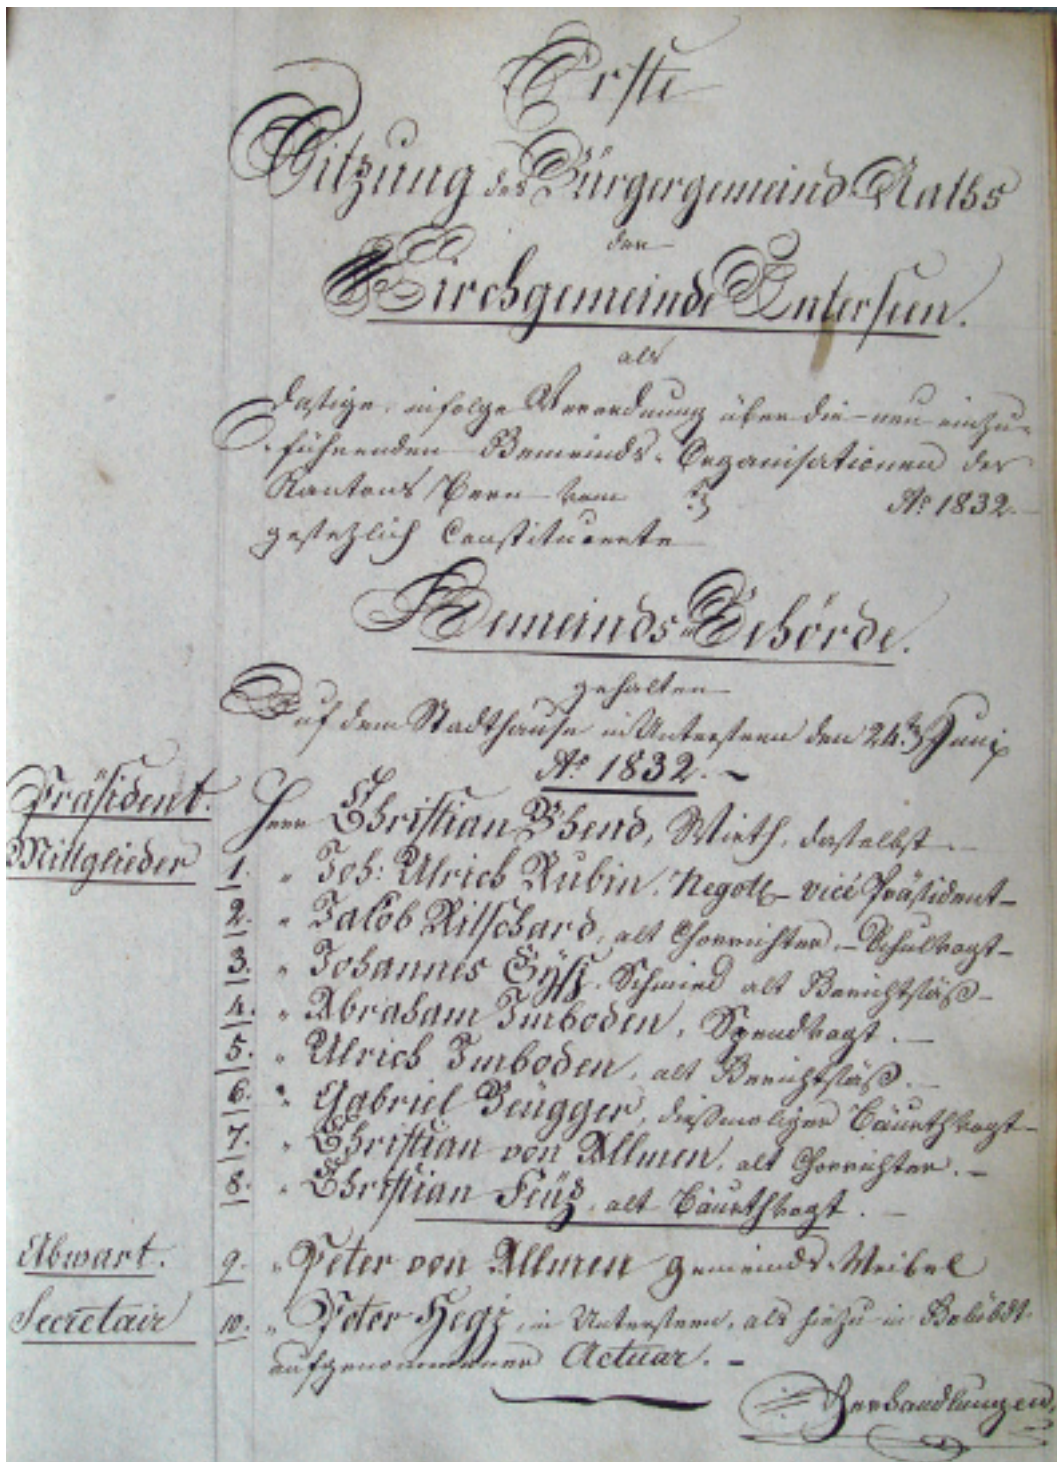 Erste
Sitzung des Bürgergemeind-Raths
der
Kirchgemeinde Unterseen.
als
dasige, infolge Verordnung über die neu einzu-
führenden Gemeinds-Organisationen des
Kantons Bern vom Ao 1832.
gesetzlich Constituierte
Gemeinds-Behörde.
gehalten
Auf dem Stadthause in Unterseen den 24ten Junij
Ao 1832. ~
Präsident. Herr Christian Bhend, Wirth, daselbst.–
Mittglieder 1. " Joh: Ulrich Rubin, Negott– vice Präsident–
2. " Jakob Ritschard, alt Chorrichter, – Schulvogt–
3. " Johannes Gÿsz, Schmied alt Gerichtsäß–
4. " Abraham Imboden, Spendvogt.–
5. " Ulrich Imboden, alt Gerichtsäß.–
6. " Gabriel Beugger, dießmaliger Bäurthvogt–
7. " Christian von Allmen, alt Chorrichter.–
8. " Christian Feüz, alt Bäurthvogt.–
Abwart. 9. " Peter von Allmen Gemeinds-Weibel
Secretair 10. " Peter Hegi, in Unterseen, als hiezu in Gelübdt
aufgenommener Actuar.–
Verhandlungen,